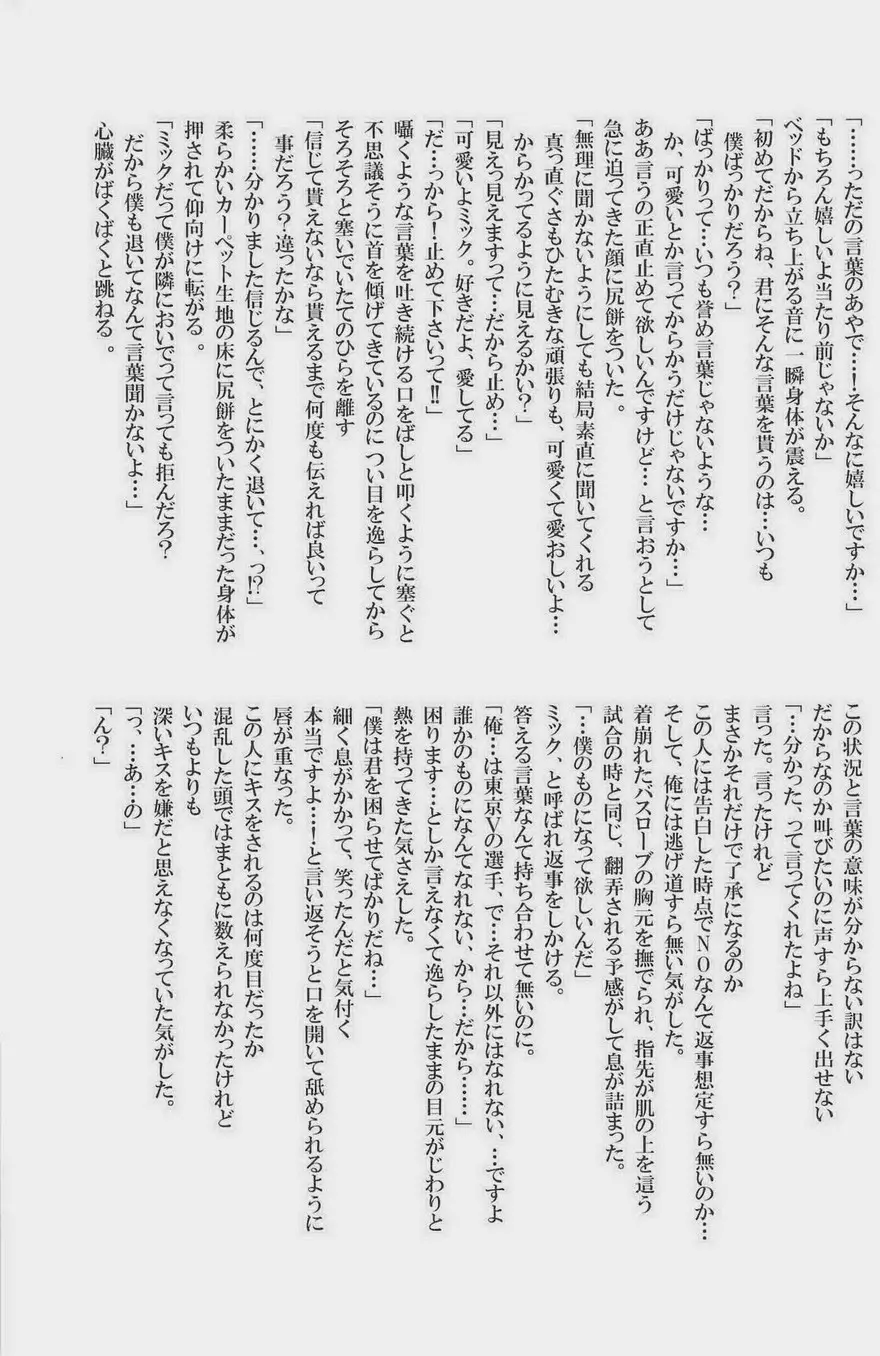 「……っただの言葉のあやで…！そんなに嬉しいですか…」
「もちろん嬉しいよ当たり前じゃないか」
ベッドから立ち上がる音に一瞬身体が震える。
「初めてだからね、君にそんな言葉を貰うのは…いつも
僕ばっかりだろう？」
「ばっかりって…いつも誉め言葉じゃないような…
か、可愛いとか言ってからかうだけじゃないですか…」
ああ言うの正直止めて欲しいんですけど…と言おうとして
急に迫ってきた顔に尻餅をついた。
「無理に聞かないようにしても結局素直に聞いてくれる
真っ直ぐさもひたむきな頑張りも、可愛くて愛おしいよ…
からかってるように見えるかい？」
「見えっ見えますって…だから止め…」
「可愛いよミック。好きだよ、愛してる」
「だ…っから！止めて下さいって!!」
囁くような言葉を吐き続ける口をばしと叩くように塞ぐと
不思議そうに首を傾げてきているのについ目を逸らしてから
そろそろと塞いでいたてのひらを離す
「信じて貰えないなら貰えるまで何度も伝えれば良いって
事だろう？違ったかな」
「……分かりました信じるんで、とにかく退いて…、っ!?」
柔らかいカーペット生地の床に尻餅をついたままだった身体が
押されて仰向けに転がる。
「ミックだって僕が隣においでって言っても拒んだろ？
だから僕も退いてなんて言葉聞かないよ…」
心臓がばくばくと跳ねる。
この状況と言葉の意味が分からない訳はない
だからなのか叫びたいのに声すら上手く出せない
「…分かった、って言ってくれたよね」
言った。言ったけれど
まさかそれだけで了承になるのか
この人には告白した時点でNOなんて返事想定すら無いのか…
そして、俺には逃げ道すら無い気がした。
着崩れたバスローブの胸元を撫でられ、指先が肌の上を這う
試合の時と同じ、翻弄される予感がして息が詰まった。
「…僕のものになって欲しいんだ」
ミック、と呼ばれ返事をしかける。
答える言葉なんて持ち合わせて無いのに。
「俺…は東京Vの選手、で…それ以外にはなれない、…ですよ
誰かのものになんてなれない、から…だから……」
困ります…としか言えなくて逸らしたままの目元がじわりと
熱を持ってきた気さえした。
「僕は君を困らせてばかりだね…」
細く息がかかって、笑ったんだと気付く
本当ですよ…！と言い返そうと口を開いて舐められるように
唇が重なった。
この人にキスをされるのは何度目だったか
混乱した頭ではまともに数えられなかったけれど
いつもよりも
深いキスを嫌だと思えなくなっていた気がした。
「っ、…あ…の」
「ん？」